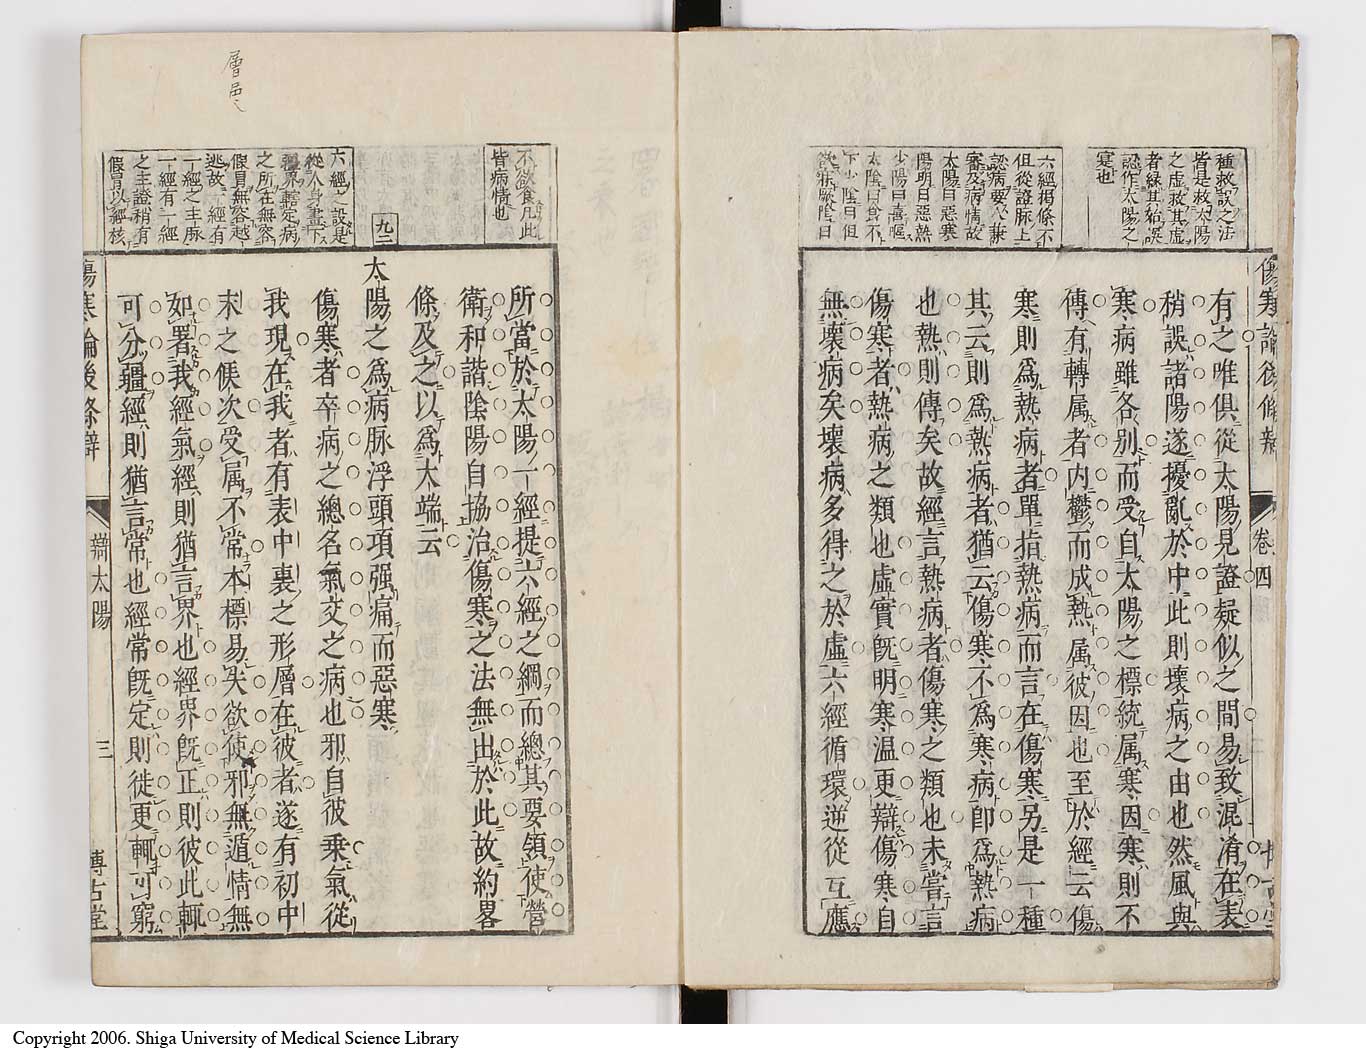 種救誤之法
皆是救太陽
之虛救其虛
者緣其始誤
認作太陽之
寔也
六經揭條不
但從證脉上
認病要人兼
審及病情故
太陽曰惡寒
陽明曰惡熱
少陽曰喜嘔
太陰曰食不
下少陰曰但
欲寐厥陰曰
傷寒論後條辯
卷四
有之唯俱從太陽見證疑似之間易致混淆在表
稍誤諸陽遂擾亂於中此則壞病之由也然風與
寒病雖各別而受自太陽之標統属寒因寒則不
傳有轉属者内鬱而成熱属彼因也至於經云傷
寒則爲熱病者單指熱病而言在傷寒另是一種
其云則爲熱病者猶云傷寒不爲寒病即爲熱病
也熱則傳矣故經言熱病者傷寒之類也未嘗言
傷寒者熱病之類也虛實既明寒温更辯傷寒自
無壞病矣壞病多得之於虛六經循環逆從互應
不欲食凡此
皆病情也
所當於太陽一經提六經之綱而總其要領使營
衛和諧陰陽自協治傷寒之法無出於此故約畧
條及之以爲大端云
九二
太陽之爲病脉浮頭項强痛而惡寒
六經之設是
從人身畫下
疆界轄定病
之所在無容
假冒無容越
逃故一經有
一經之主脉
一經有一經
之主證稍有
假冐以經核
傷寒者卒病之總名氣交之病也邪自彼乗氣從
我現在我者有表中裏之形層在彼者遂有初中
末之候次受属不常本標易失欲使邪無遁情無
如署我經氣經則猶言界也經界既正則彼此輒
可分疆經則猶言常也經常既定則徙更輒可窮
傷寒論後條辯
辯太陽
三
博古堂
層邑